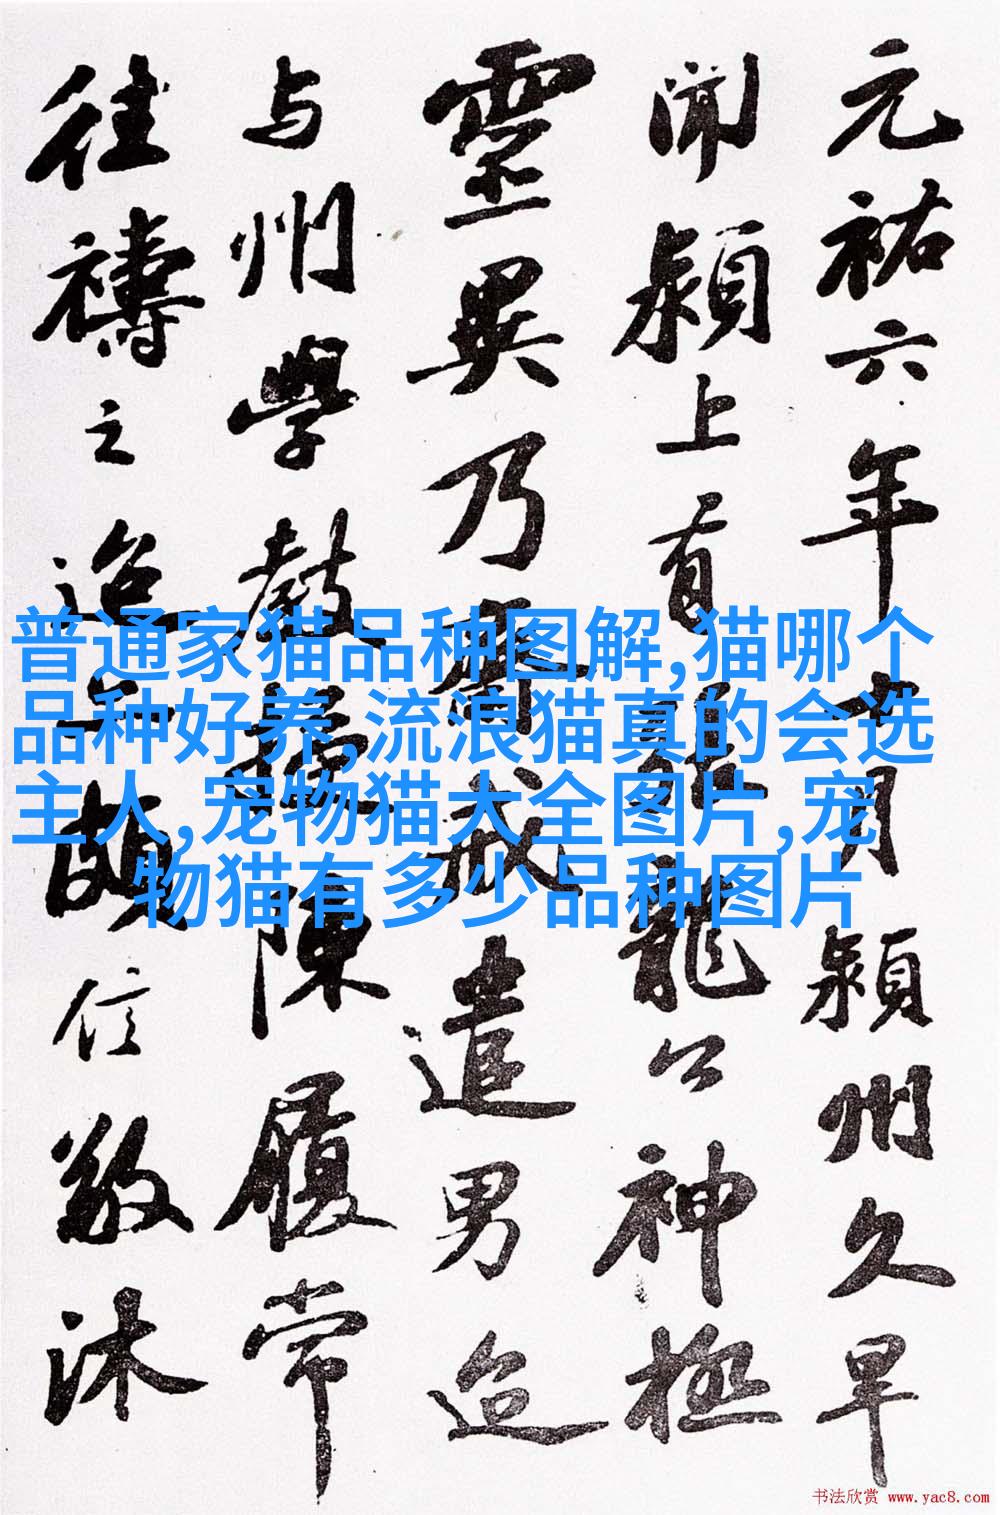 元祐六年十月潁州久旱
聞潁上有張龍公神極
靈異乃齋戒遣男迨
与州學教授陳履常
往禱之迨亦頗信敬沐
普通家猫品种图解,猫哪个
品种好养,流浪猫真的会选
主人,宠物猫大全图片,宠
物猫有多少品种图片
书法欣赏 www.yac8.com